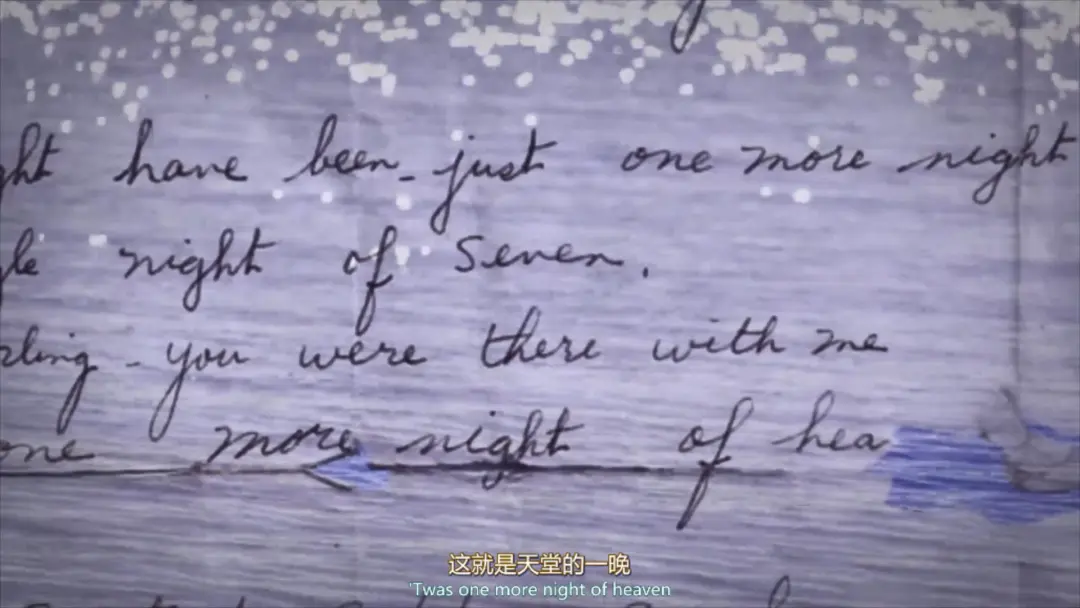 ght have been - just one more night
gle night of seven.
rling - you were there with me
one more night of hea
这就是天堂的一晚
'Twas one more night of heaven